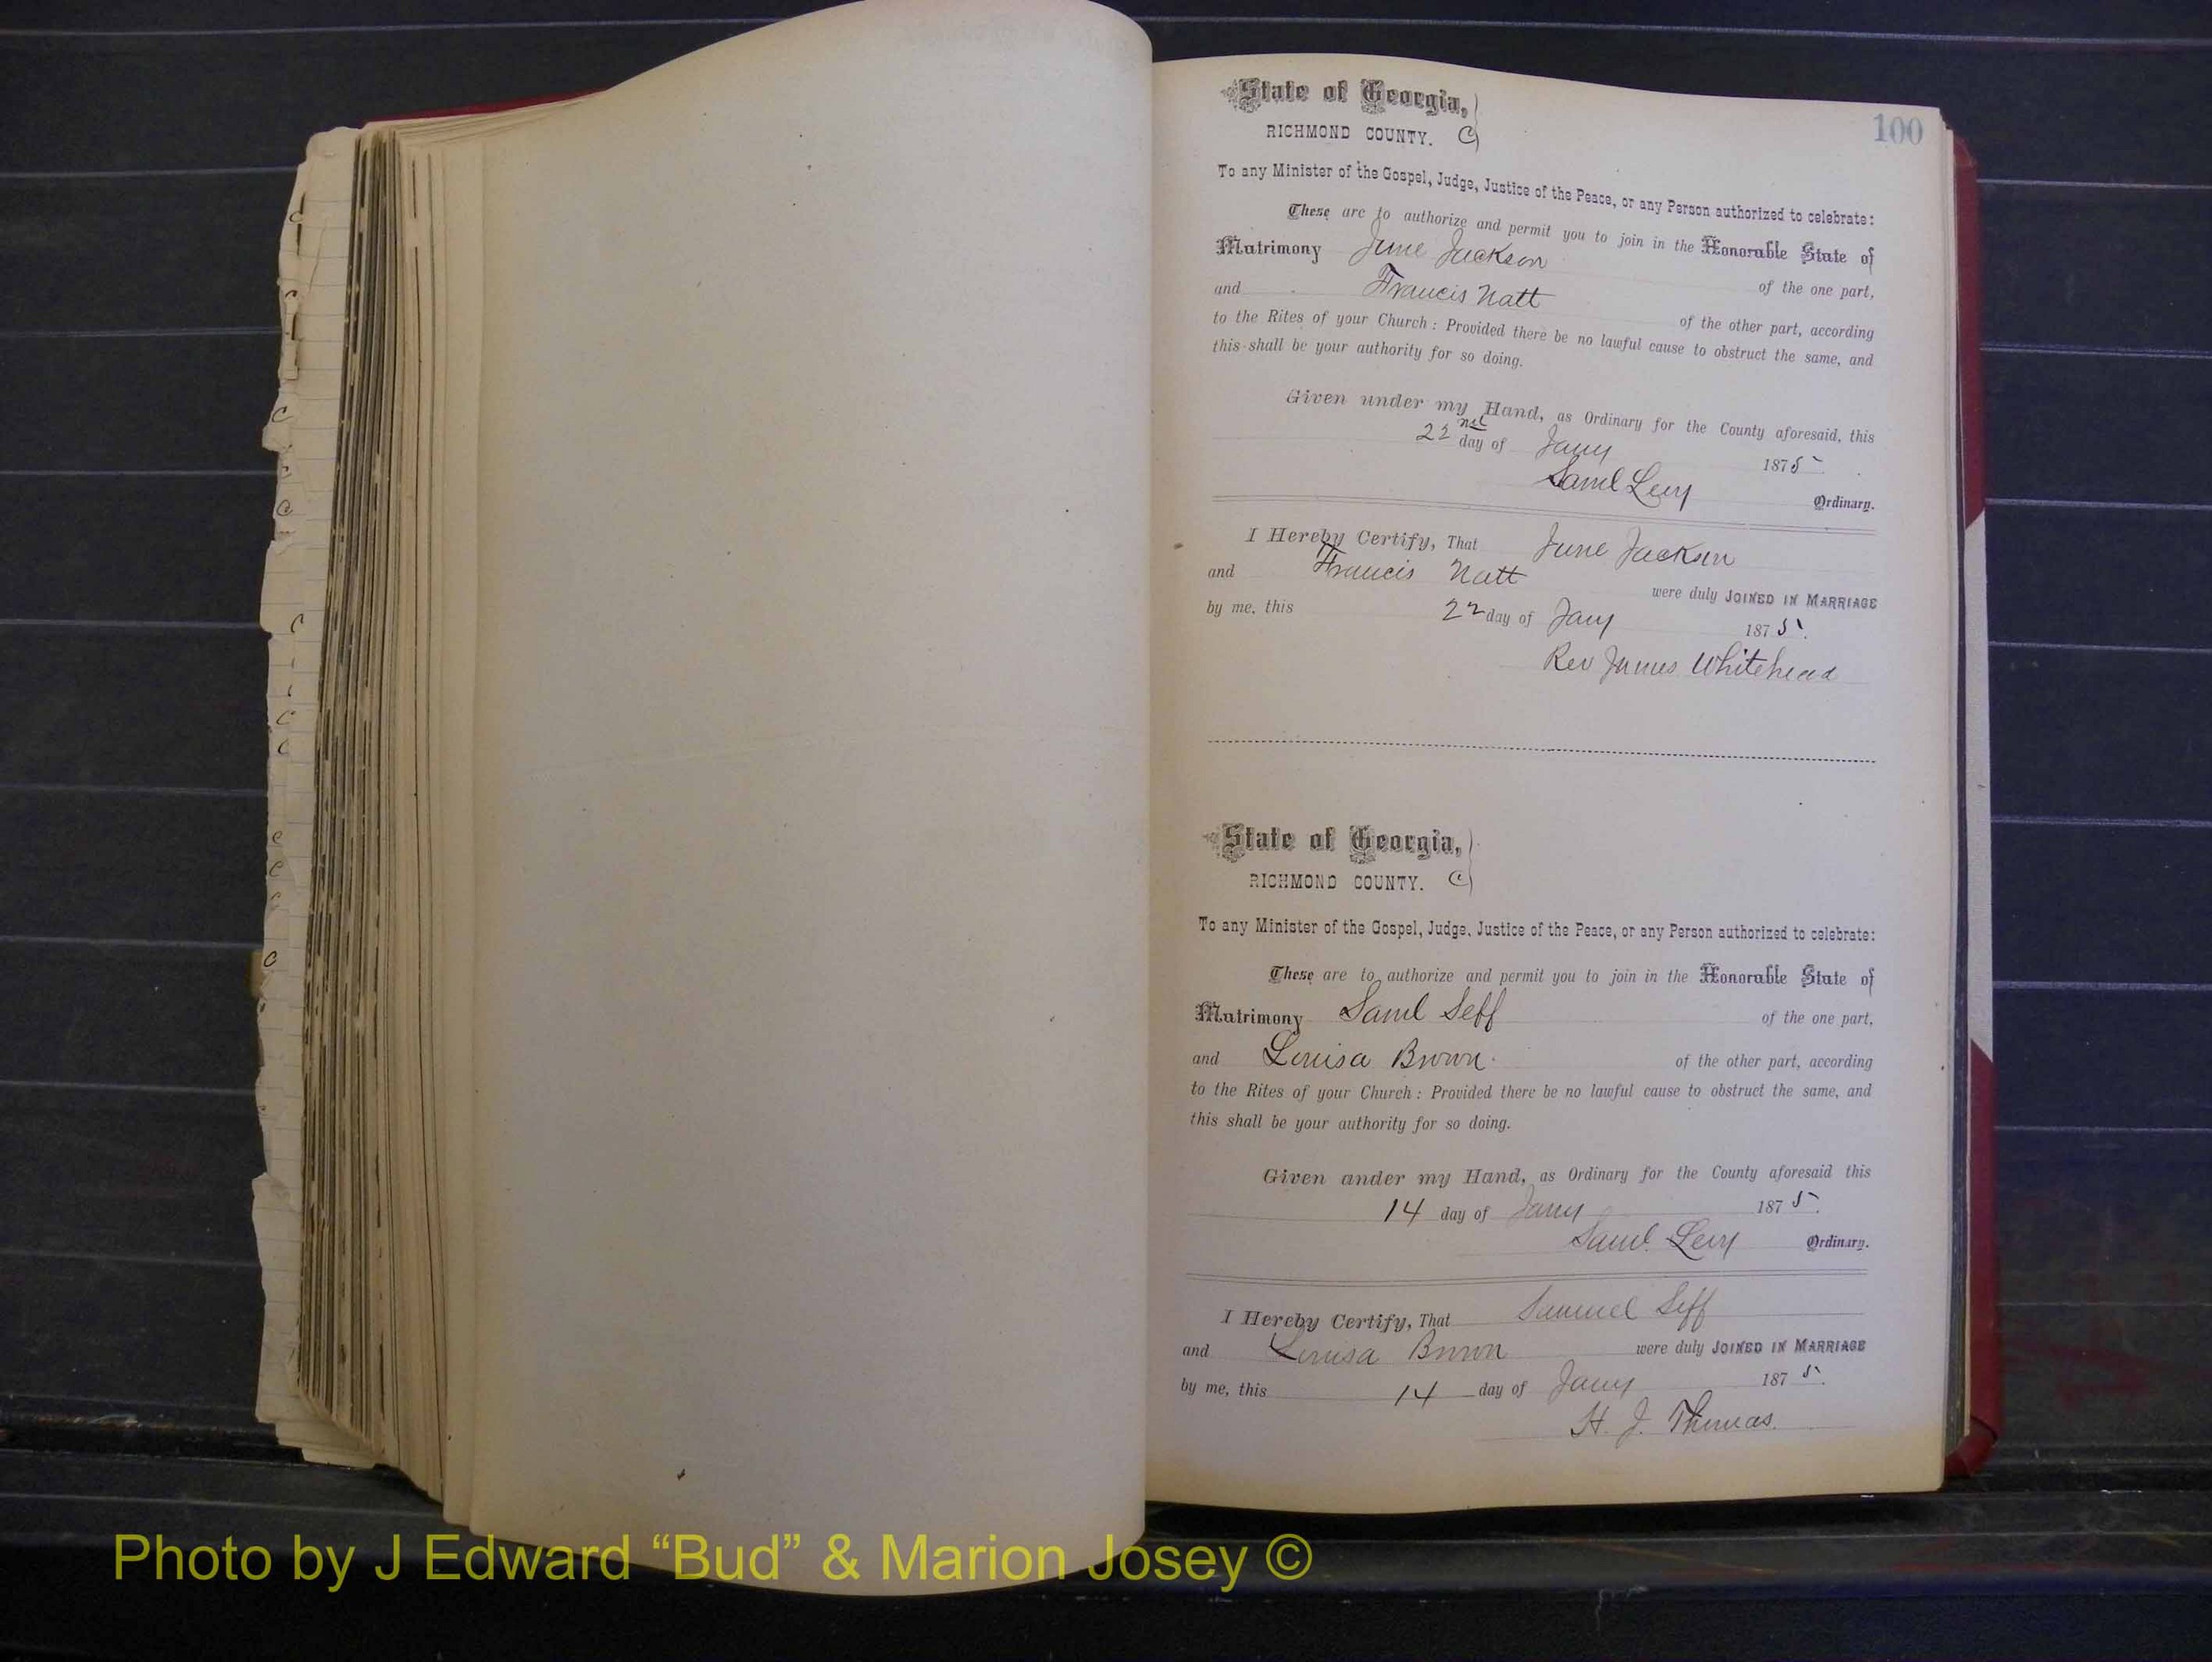 100
State of Georgia,
RICHMOND COUNTY. C
To any Minister of the Gospel, Judge, Justice of the Peace, or any Person authorized to celebrate:
These are to authorize and permit you to join in the Honorable State of
Matrimony June Jackson of the one part,
and Francis Natt of the other part, according
to the Rites of your Church: Provided there be no lawful cause to obstruct the same, and
this shall be your authority for so doing.
Given under my Hand, as Ordinary for the County aforesaid, this
22nd day of Jany 1875
Saml Levy Ordinary.
I Hereby Certify, That June Jackson
and Francis Natt were duly JOINED IN MARRIAGE
by me, this 22 day of Jany 1875.
Rev James Whitehead
State of Georgia,
RICHMOND COUNTY. C
To any Minister of the Gospel, Judge, Justice of the Peace, or any Person authorized to celebrate:
These are to authorize and permit you to join in the Honorable State of
Matrimony Saml Seff of the one part,
and Louisa Brown of the other part, according
to the Rites of your Church: Provided there be no lawful cause to obstruct the same, and
this shall be your authority for so doing.
Given under my Hand, as Ordinary for the County aforesaid this
14 day of Jany 1875.
Saml. Levy Ordinary.
I Hereby Certify, That Samuel Seff
and Louisa Brown were duly JOINED IN MARRIAGE
by me, this 14 day of Jany 1875.
H. J. Thomas.
Photo by J Edward “Bud” & Marion Josey ©